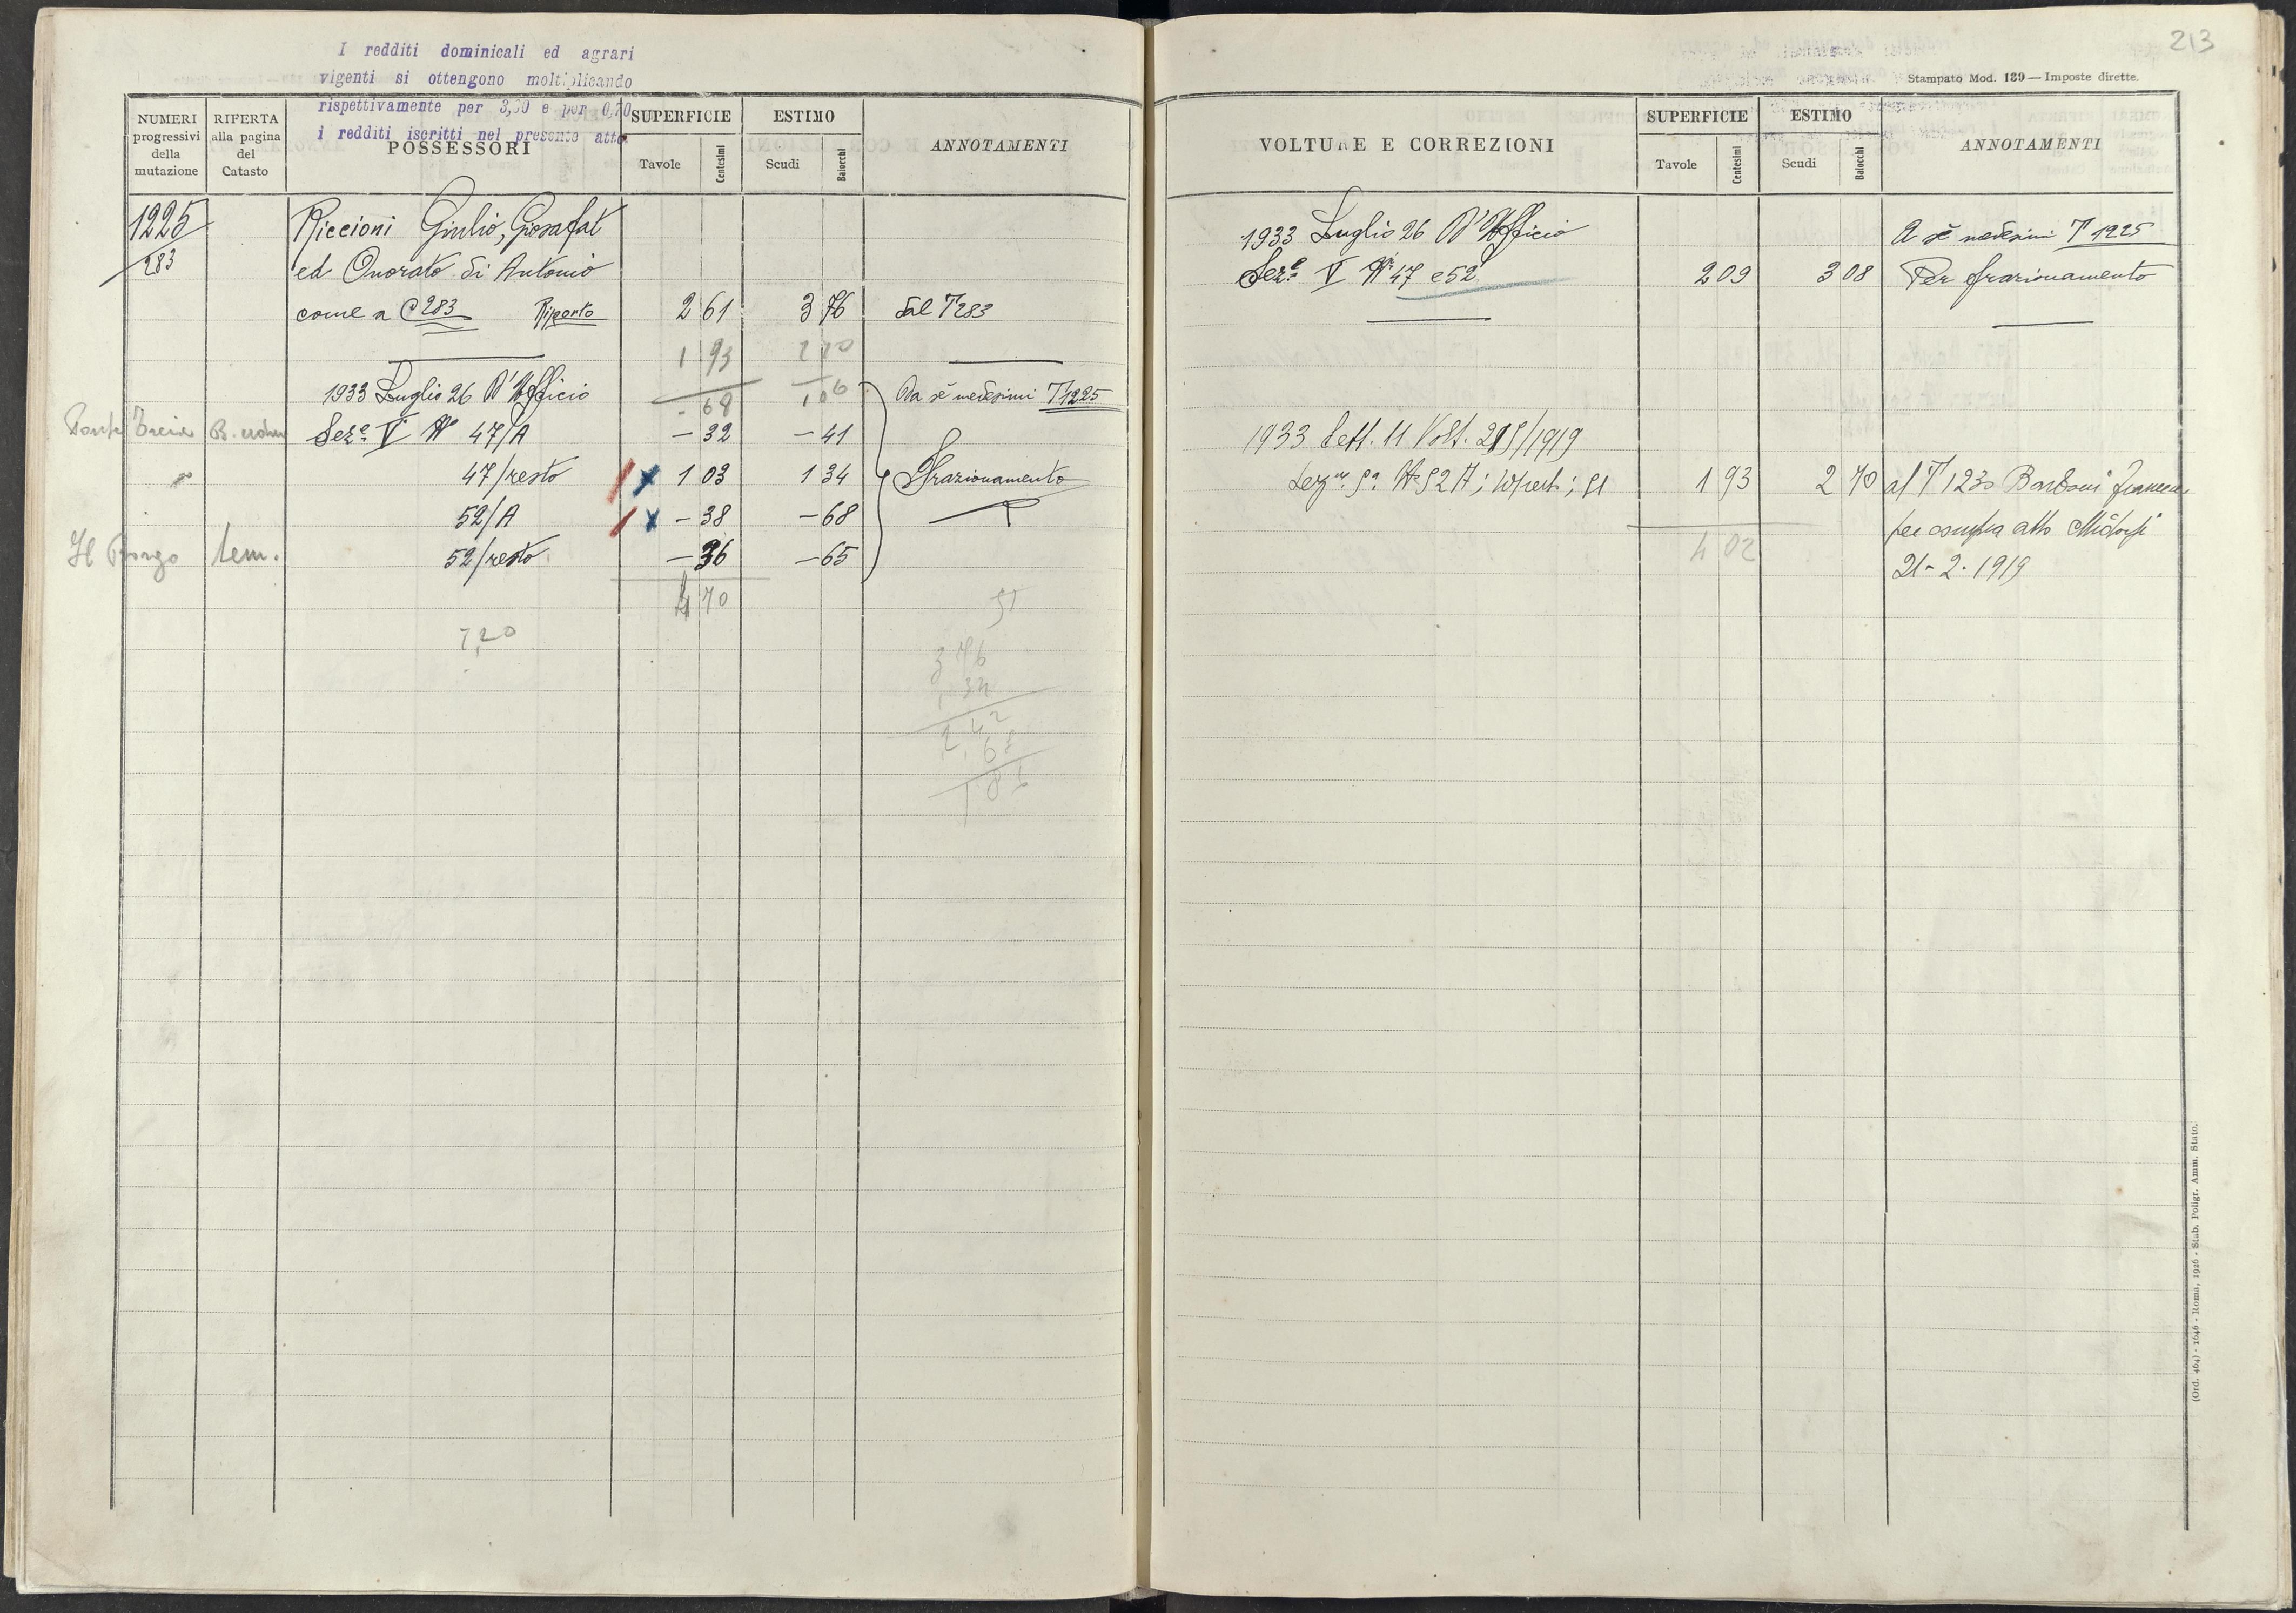 I redditi dominicali ed agrari
vigenti si ottengono moltiplicando
rispettivamente per 3,50 e per 0,70
i redditi iscritti nel presente atto.
NUMERI progressivi della mutazione
RIFERTA alla pagina del Catasto
POSSESSORI
SUPERFICIE
Tavole Centesimi
ESTIMO
Scudi Baiocchi
ANNOTAMENTI
1225 Riccioni Giulio, Giosafat
283 ed Onorato di Antonio
come a C 283 Riporto 2 61 3 76 dal T 283
1 93 2 70
1933 Luglio 26 D'Ufficio - 68 1 06 Da sè medesimi T 1225
Ponte Sez.e V N° 47/A - 32 - 41
47/resto 1 03 1 34 Frazionamento
52/A - 38 - 68
Il Borgo sem. 52/resto - 36 - 65
4 70
7,20
51
3 76
34
2 42
1 6
213
Stampato Mod. 139 — Imposte dirette.
VOLTURE E CORREZIONI
SUPERFICIE
Tavole Centesimi
ESTIMO
Scudi Baiocchi
ANNOTAMENTI
1933 Luglio 26 D'Ufficio A sè medesimi T 1225
Sez.e V N.i 47 e 52 2 09 3 08 Per frazionamento
1933 Sett. 11 Volt. 215/1919
1 93 2 70 al T 1230 Barboni
4 02 per compra atto
21-2-1919
(Ord. 464) - 1646 - Roma, 1926 - Stab. Poligr. Amm. Stato.